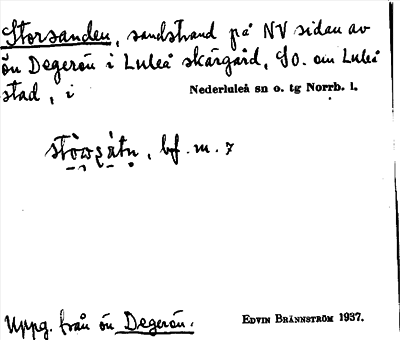 Storsanden, sandstrand på NV sidan av
ön Degerön i Luleå skärgård, SO. om Luleå
stad, i Nederluleå sn o. tg Norrb. l.
bf. m. 7
Uppg. från ön Degerön.
EDVIN BRÄNNSTRÖM 1937.